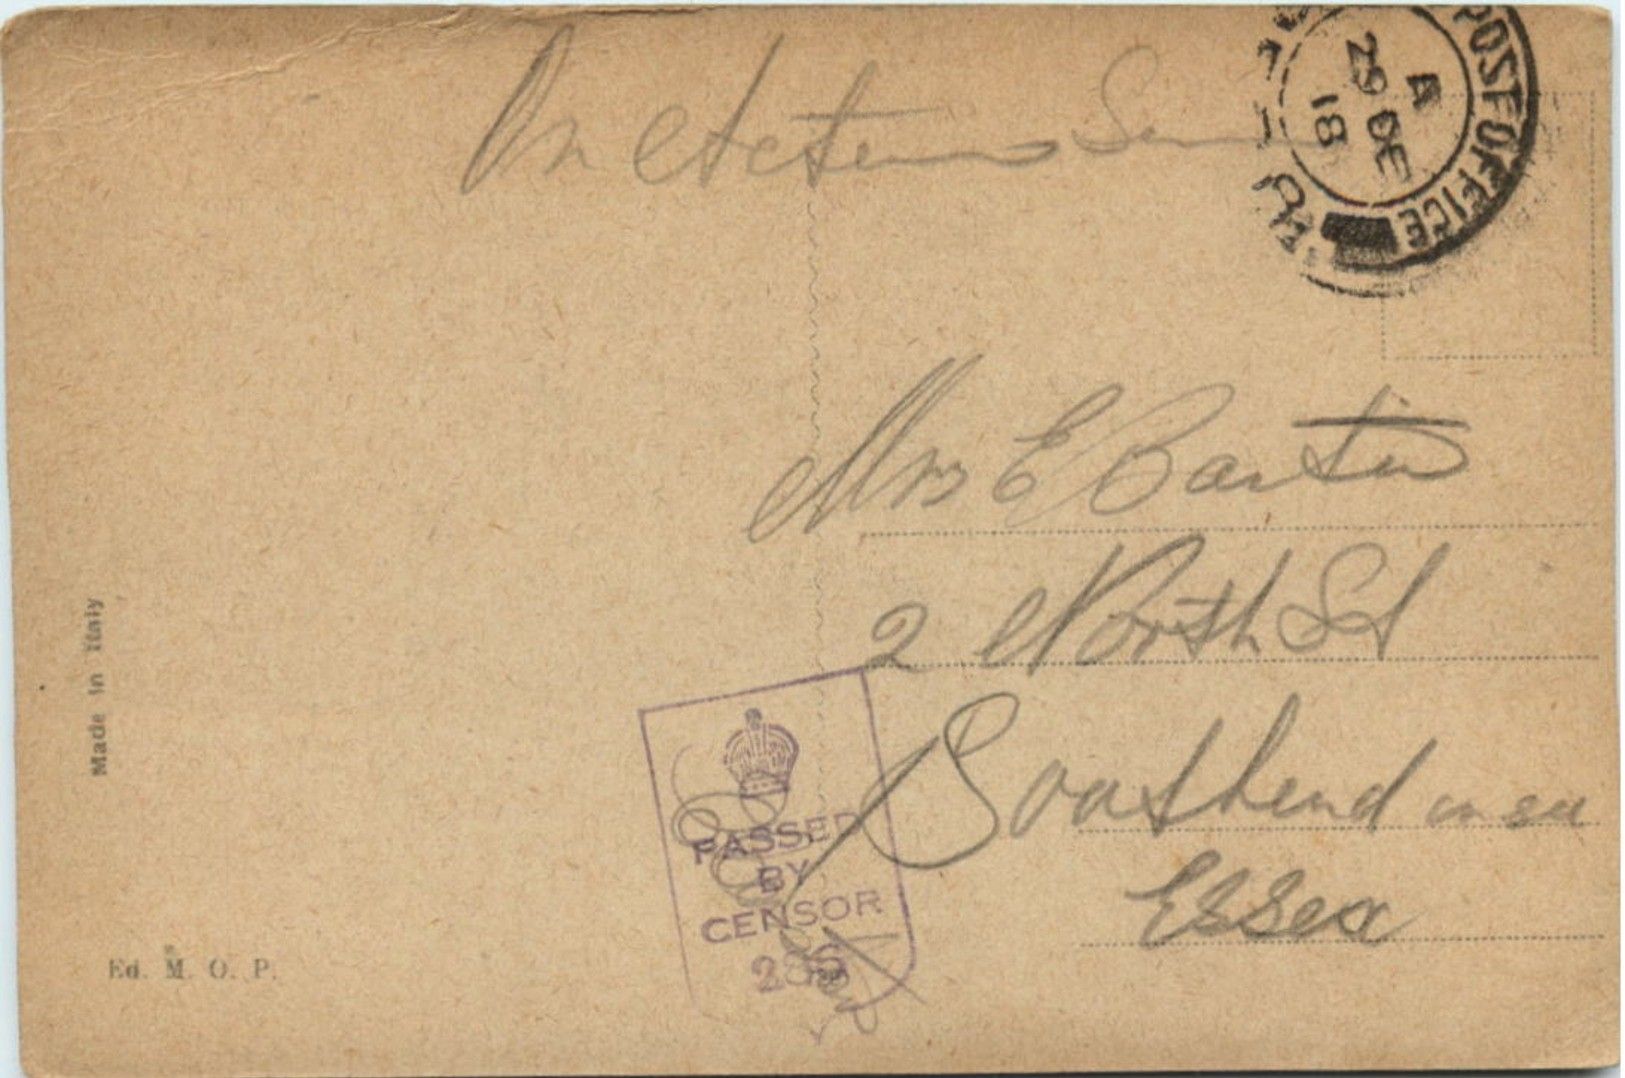 On Active Ser
POST OFFICE
A
29 DE
18
Mrs E Baxter
2 North St
Southend on sea
Essex
PASSED
BY
CENSOR
Made in Italy
Ed. M. O. P.